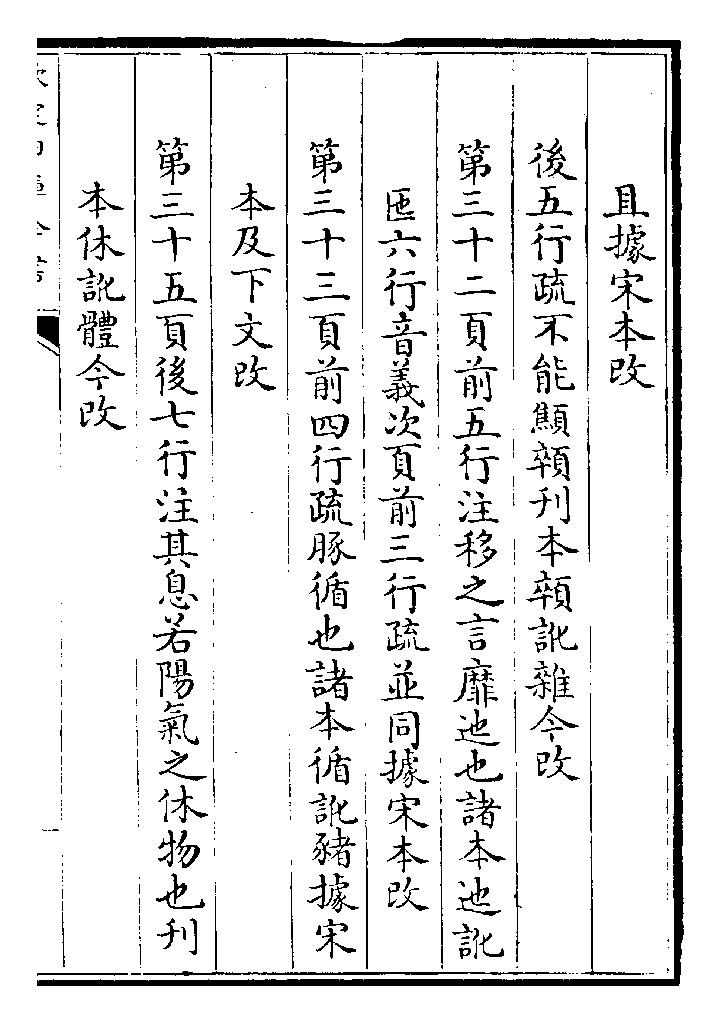 且據宋本改
後五行疏不能顯𩔰刊本𩔰訛雜今改
第三十二頁前五行注移之言靡迆也諸本迆訛
匜六行音義次頁前三行疏並同據宋本改
第三十三頁前四行疏豚循也諸本循訛豬據宋
本及下文改
第三十五頁後七行注其息若陽氣之休物也刊
本休訛體今改
欽定四庫全書